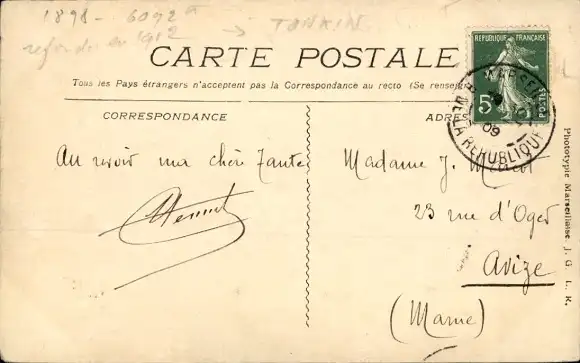 1898 - 6092
refondu en 1912 → TONKIN
CARTE POSTALE
Tous les Pays étrangers n'acceptent pas la Correspondance au recto (Se renseig
CORRESPONDANCE
ADRES
RÉPUBLIQUE FRANÇAISE
5
POSTES
MARSEI
R. DE LA RÉPUBLIQUE
09
Au revoir ma chère Tante
Madame J.
23 rue d'Oger
Avize
(Marne)
Phototypie Marseillaise J. G. L. R.